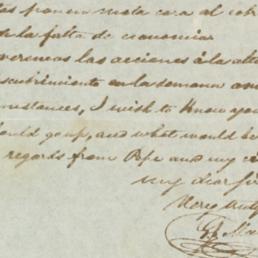 las ponen mota cara al cob
de la falta de economia
veremos las acciones à la alt
scubrimiento en la semana an
mstances, I wish to know you
ould go up, and what would be
regards from Pepe and my
my dear Sir
Very truly